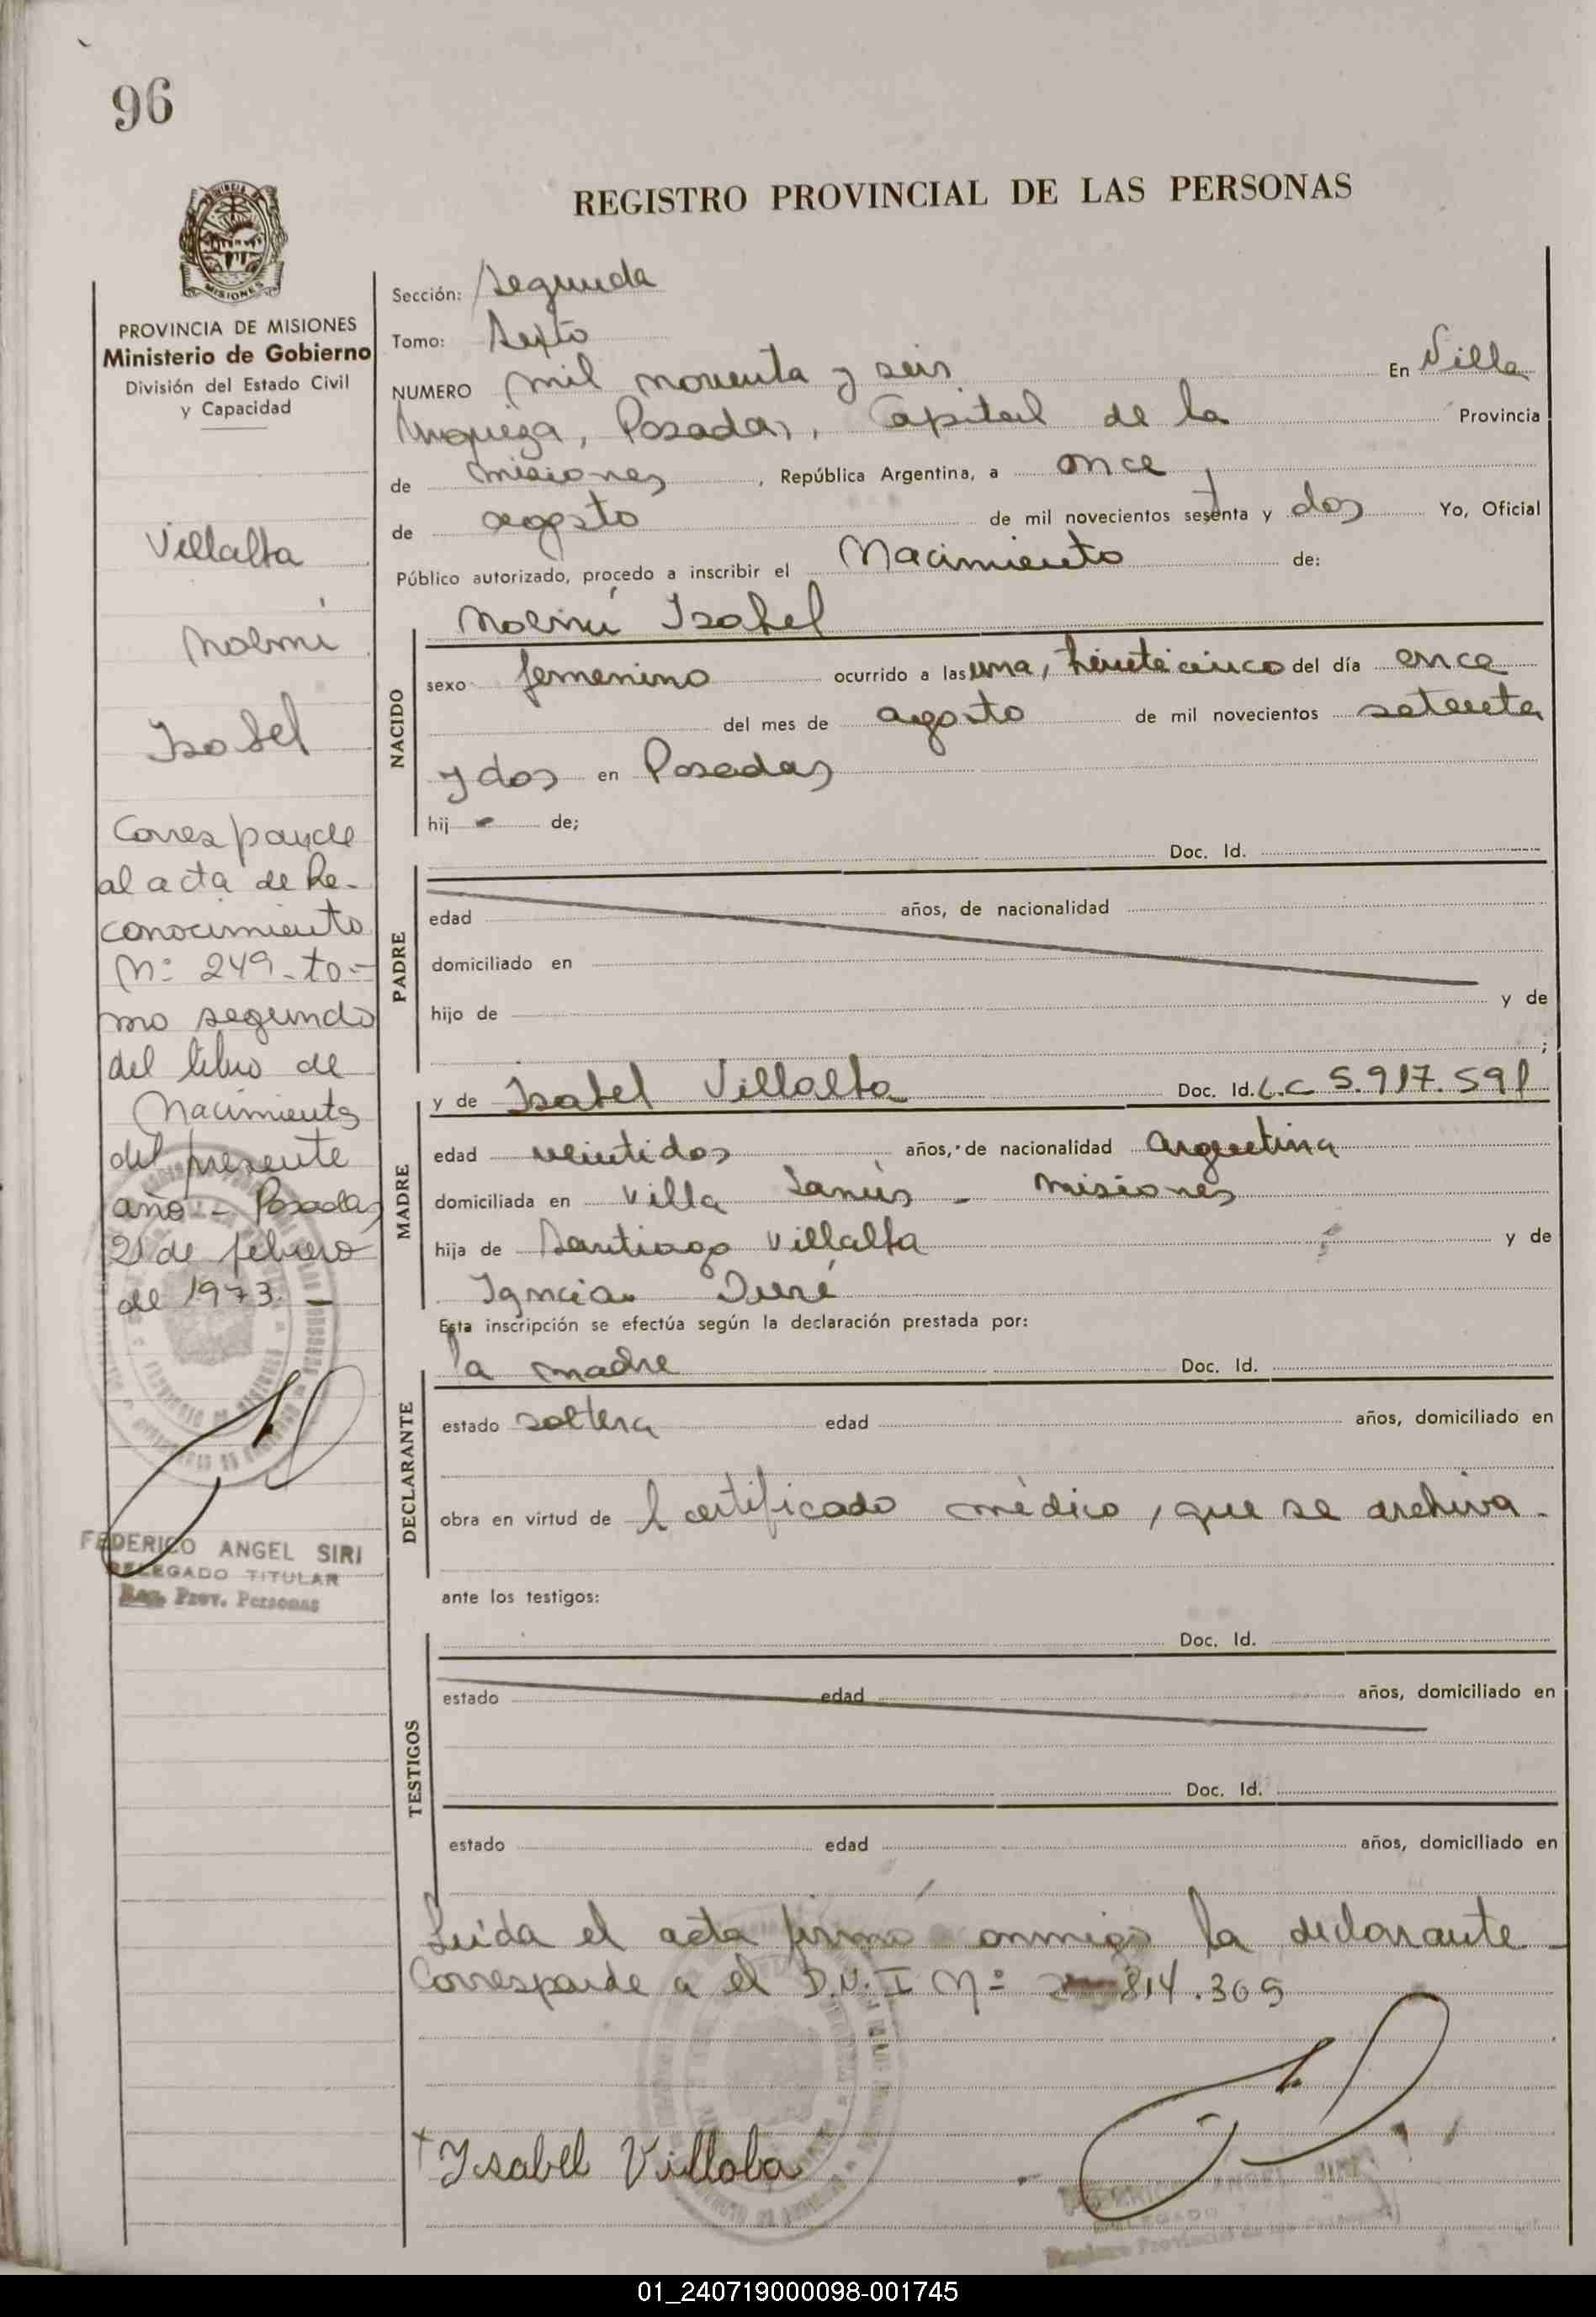 96
REGISTRO PROVINCIAL DE LAS PERSONAS
MISIONES
PROVINCIA DE MISIONES
Ministerio de Gobierno
División del Estado Civil
y Capacidad
Villalta
Noemí
Isabel
Corresponde
al acta de Re-
conocimiento
Nº 249 - to-
mo segundo
del libro de
Nacimientos
del presente
año - Posadas
21 de febrero
de 1973. -
FEDERICO ANGEL SIRI
DELEGADO TITULAR
Reg. Prov. Personas
Sección: Segunda
Tomo: Sexto
NUMERO mil noventa y seis En Villa
Urquiza, Posadas, Capital de la Provincia
de Misiones, República Argentina, a once
de agosto de mil novecientos sesenta y dos Yo, Oficial
Público autorizado, procedo a inscribir el Nacimiento de:
Noemí Isabel
NACIDO
sexo femenino ocurrido a las una, del día once
del mes de agosto de mil novecientos setenta
y dos en Posadas
hij de;
Doc. Id.
PADRE
edad años, de nacionalidad
domiciliado en
hijo de y de
;
MADRE
y de Isabel Villalta Doc. Id. L.C 5.917.591
edad veintidos años, de nacionalidad Argentina
domiciliada en Villa Lanús - Misiones
hija de Santiago Villalta y de
Duré
Esta inscripción se efectúa según la declaración prestada por:
DECLARANTE
la madre Doc. Id.
estado soltera edad años, domiciliado en
obra en virtud de l certificado médico, que se archiva.
ante los testigos:
TESTIGOS
Doc. Id.
estado edad años, domiciliado en
Doc. Id.
estado edad años, domiciliado en
Leída el acta firmó conmigo la declarante
Corresponde a el D.N.I Nº 814.309
Ysabel Villaba
01_240719000098-001745